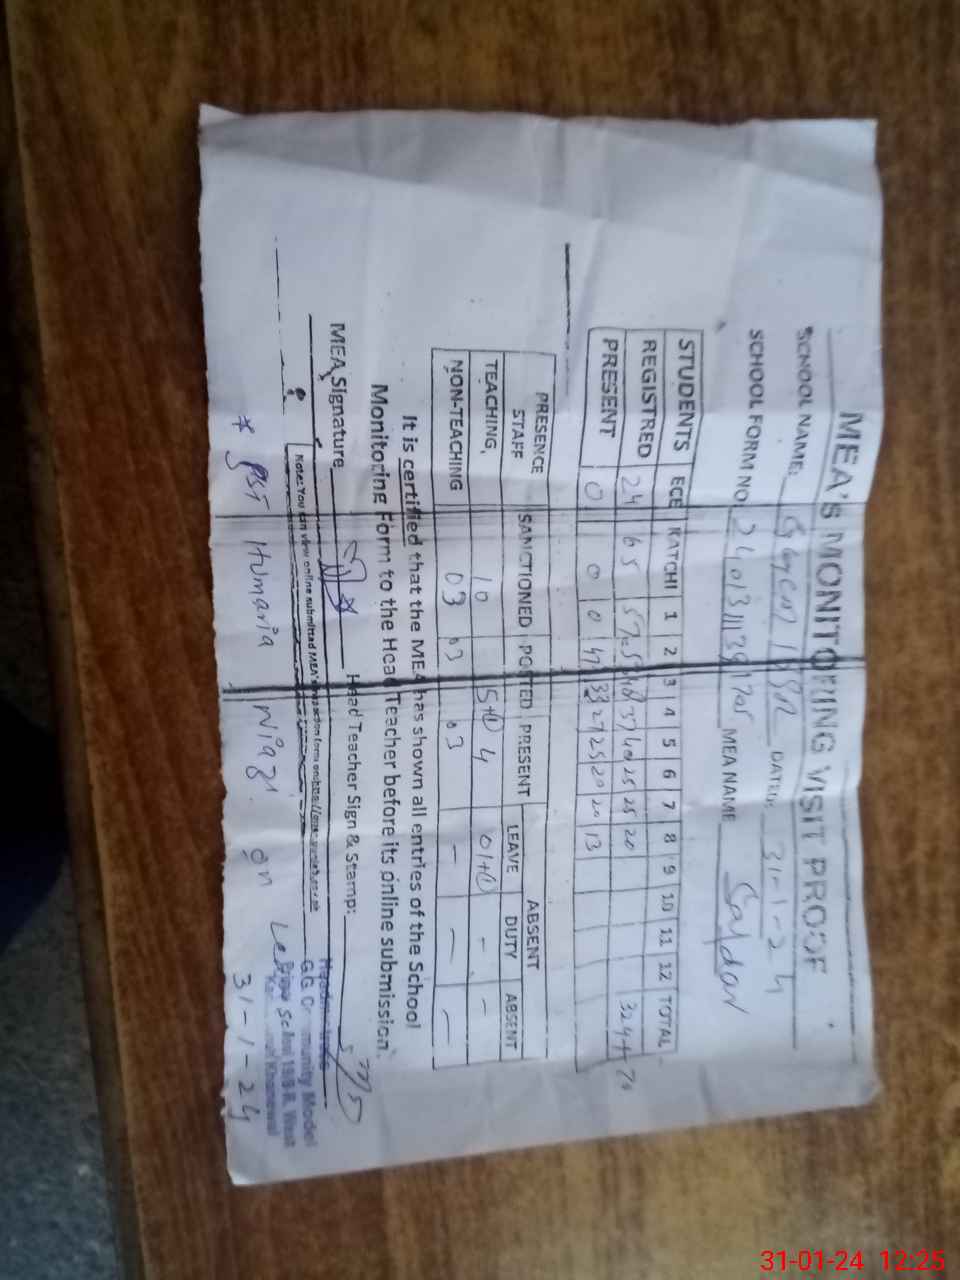 MEA'S MONITORING VISIT PROOF
SCHOOL NAME: DATED: 31-1-24
SCHOOL FORM NO. MEA NAME Safdar
STUDENTS ECE KATCHI 1 2 3 4 5 6 7 8 9 10 11 12 TOTAL
REGISTRED 24 65 37 40 25 25 20
PRESENT 0 0 0 47 33 27 25 20 20 13
PRESENCE STAFF SANCTIONED POSTED PRESENT ABSENT
LEAVE DUTY ABSENT
TEACHING 10 4 - -
NON-TEACHING 03 03 03 - - -
It is certified that the MEA has shown all entries of the School
Monitoring Form to the Head Teacher before its online submission.
MEA Signature Head Teacher Sign & Stamp:
Note: You can view online submitted MEA's
G.G. Community Model
School 19/8-R, West
Khanewal
* PST Humaria Niaz on Leave
31-1-24
31-01-24 12:25